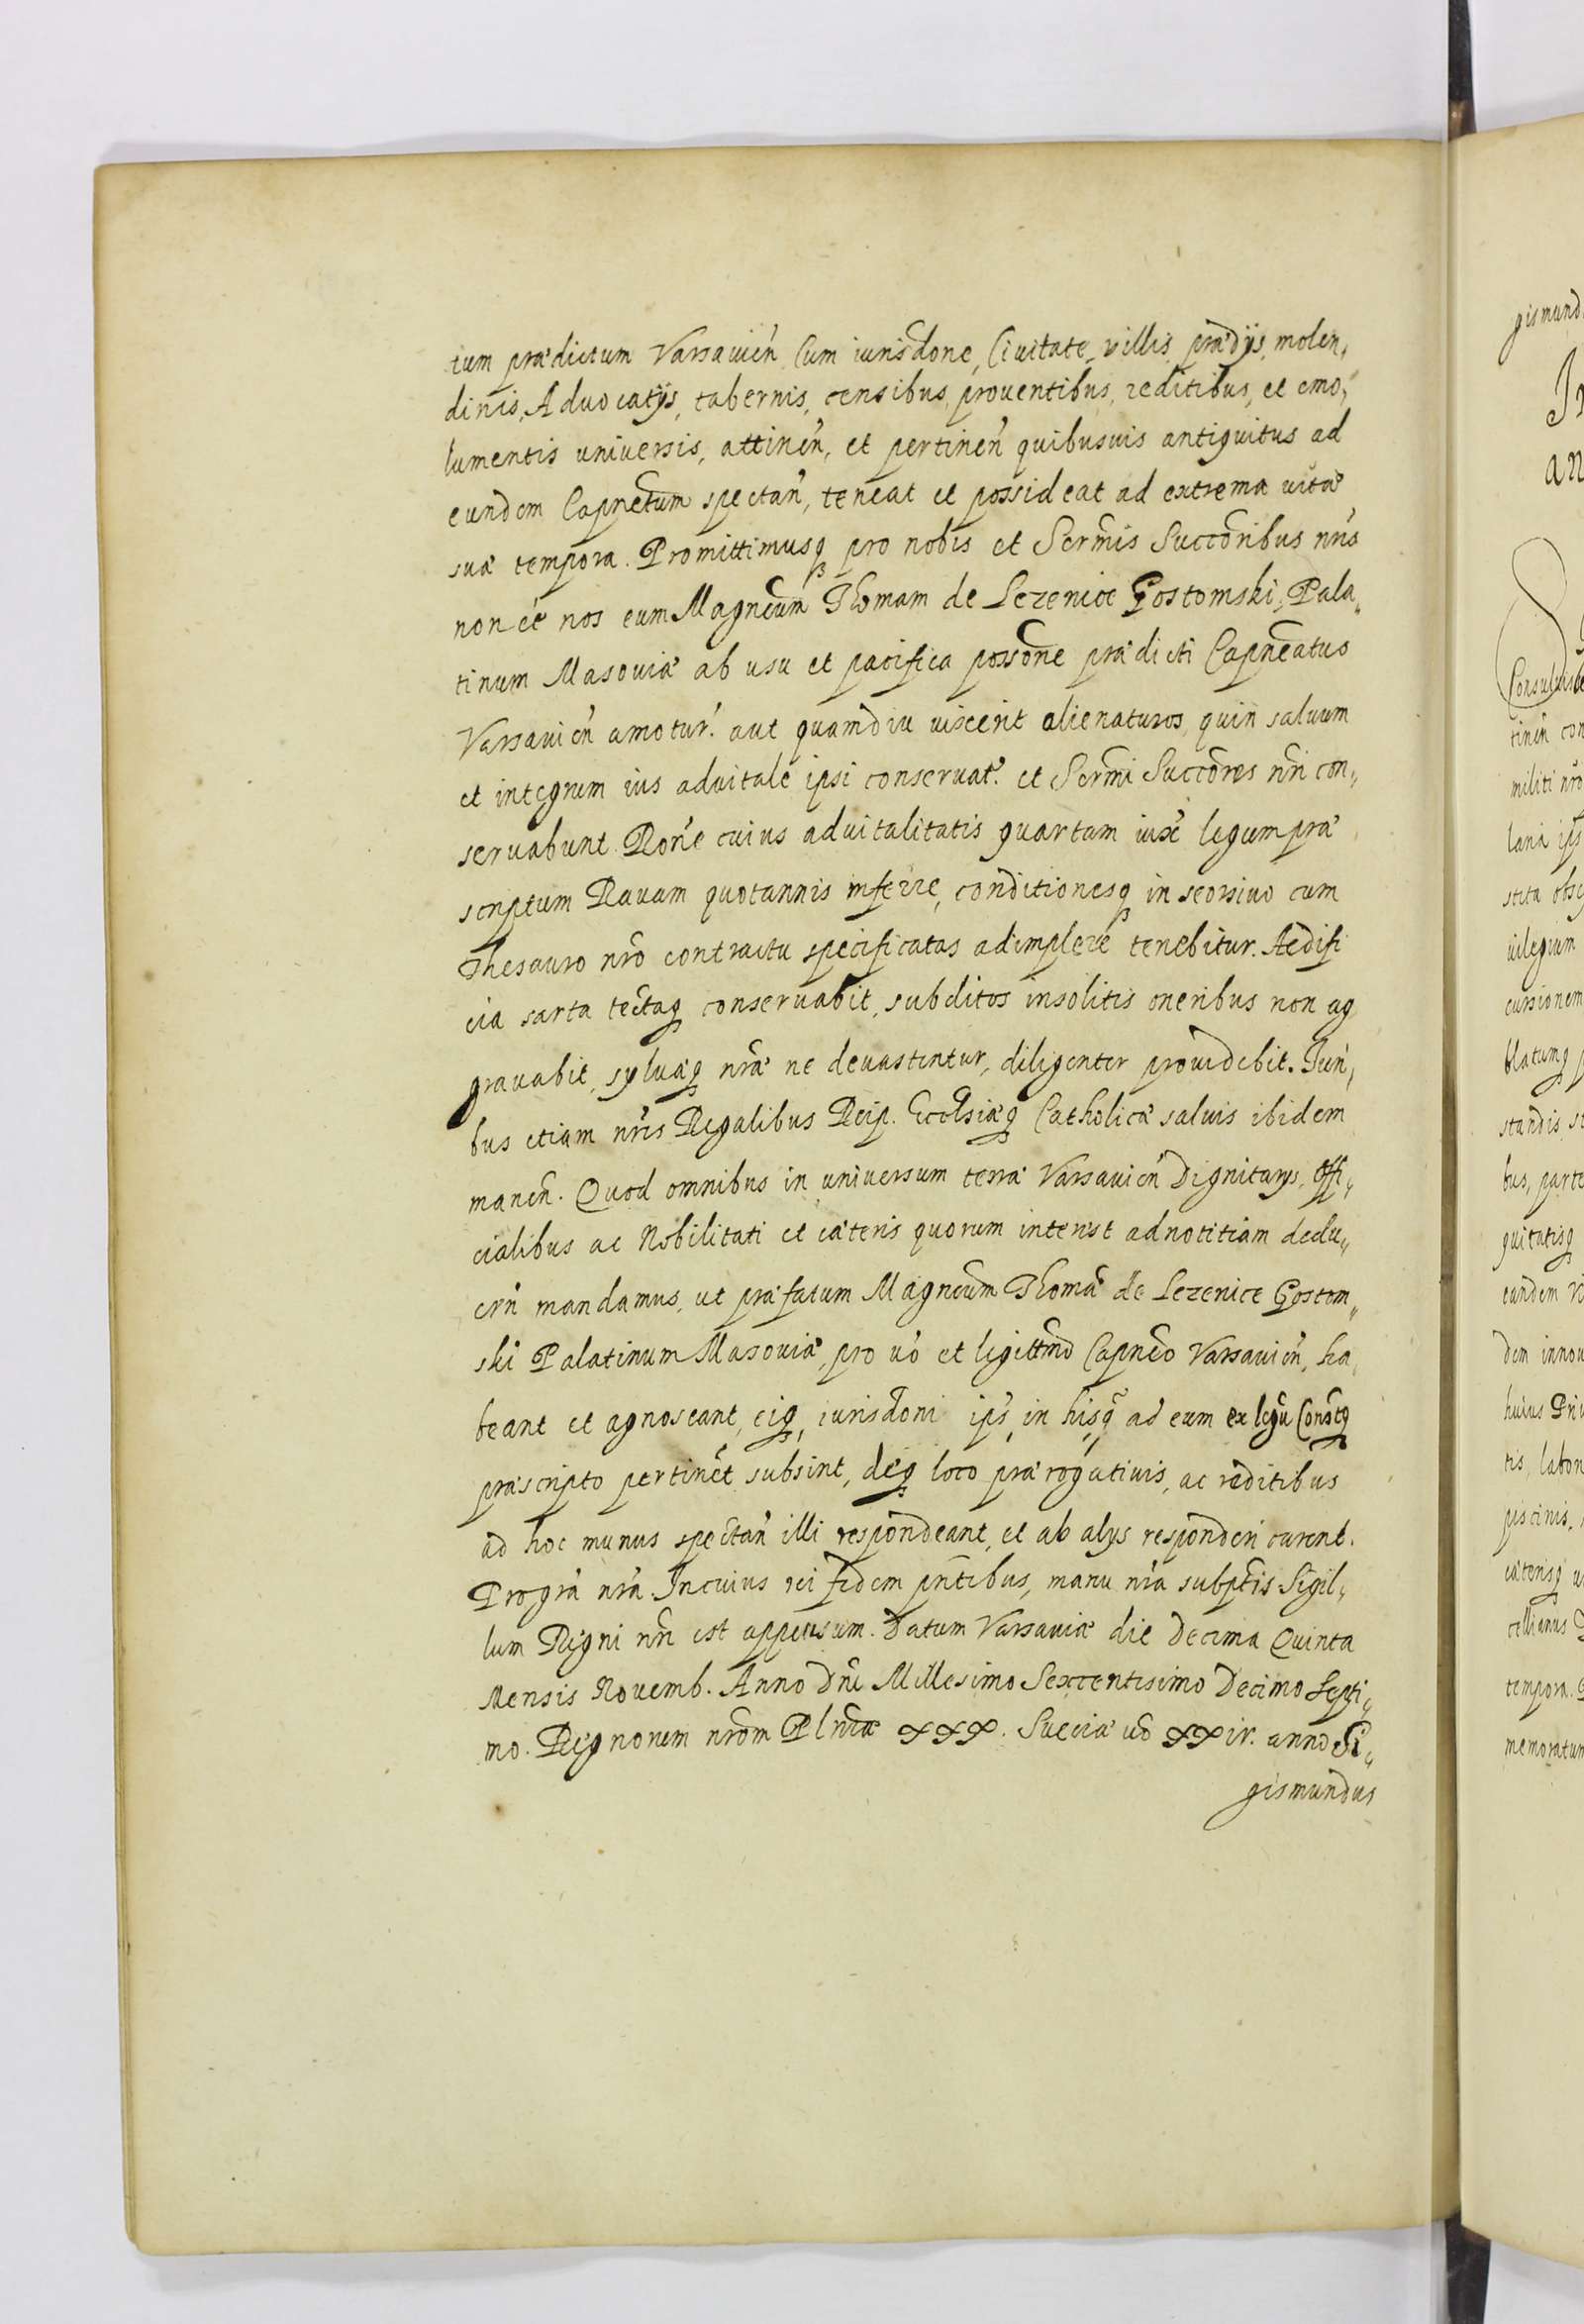 tum prædictum Varsauien̄ Cum iurisdōne, Ciuitate, villis, prædijs, molen,
dinis, Aduocatijs, tabernis, censibus, prouentibus, reditibus, et emo,
lumentis uniuersis, attinen̄, et pertinen̄ quibusuis antiquitus ad
eundem Capnetum spectan̄, teneat et possideat ad extrema uitæ
suæ tempora. Promittimusq pro nobis et Sermis Succoribus nris
non eē nos eum Magncum Thomam de Lezenice Gostomski, Pala„
tinum Masouiæ ab usu et pacifica possone prædicti Capneatus
Varsauien̄ amotur. aut quamdiu uixerit alienaturos, quin saluum
et integrum ius aduitale ipsi conseruat. et Sermi Succores nri con„
seruabunt. Rone cuius aduitalitatis quartam iuxē legum præ
scriptum Rauam quotannis inferre, conditionesq in seorsiuo cum
Thesauro nro contractu specificatas adimplere tenebitur. Aedifi
cia sarta tectaq conseruabit, subditos insolitis oneribus non ag
grauabit, syluasq nrās ne deuastentur, diligenter prouidebit. Juri,
bus etiam nris Regalibus Reip. Ecclsiæq Catholicæ saluis ibidem
manen̄. Quod omnibus in uniuersum terræ Varsauien̄ Dignitarys, Offi„
cialibus ac Nobilitati et cæteris quorum interest ad notitiam dedu„
cen̄ mandamus, ut præfatum Magncum Thomā de Lezenice Gostom„
ski Palatinum Masouiæ, pro uō et legittmo Capneo Varsauien̄, ha
beant et agnoscant, eiq, iurisdoni ips, in hisq̄ ad eum ex legū Constq
præscripto pertinēt subsint, deq loco prærogatiuis, ac reditibus
ad hoc munus spectan̄ illi respondeant, et ab alys responderi curent.
Pro grā nrā. In cuius rei fidem pntibus, manu nrā subptis Sigil„
lum Regni nri est appensum. Datum Varsauiæ die Decima Quinta
Mensis Nouemb. Anno Dni Millesimo Sexcentesimo Decimo Septi„
mo. Regnorum nrom Plniæ XXX. Sueciæ uō XXiv. anno Si„
gismundus